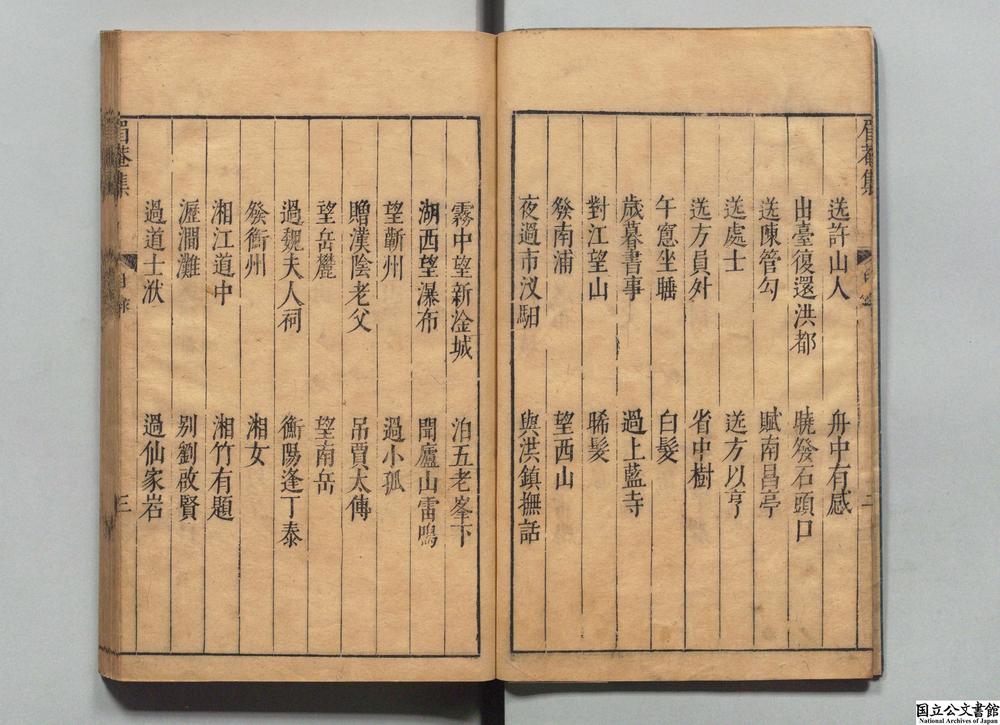 眉菴集
目錄
二
送許山人 舟中有感
出臺復還洪都 曉發石頭口
送陳管勾 賦南昌亭
送處士 送方以亨
送方員外 省中樹
午窻坐睡 白髮
歲暮書事 過上藍寺
對江望山 晞髮
發南浦 望西山
夜過市汊馹 與洪鎮撫話
霧中望新淦城 泊五老峯下
湖西望瀑布 聞廬山雷鳴
望蘄州 過小孤
贈漢陰老父 吊賈太傅
望岳麓 望南岳
過魏夫人祠 衡陽逢丁泰
發衡州 湘女
湘江道中 湘竹有題
瀍澗灘 别劉啟賢
過道士洑 過仙家岩
眉菴集
目錄
三
国立公文書館
National Archives of Japan